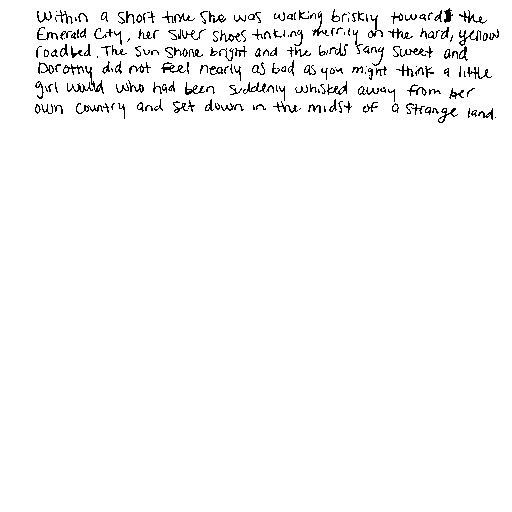 Within a short time she was walking briskly towards the
Emerald City, her silver shoes tinkling merrily on the hard, yellow
roadbed. The sun shone bright and the birds sang sweet and
Dorothy did not feel nearly as bad as you might think a little
girl would who had been suddenly whisked away from her
own country and set down in the midst of a strange land.